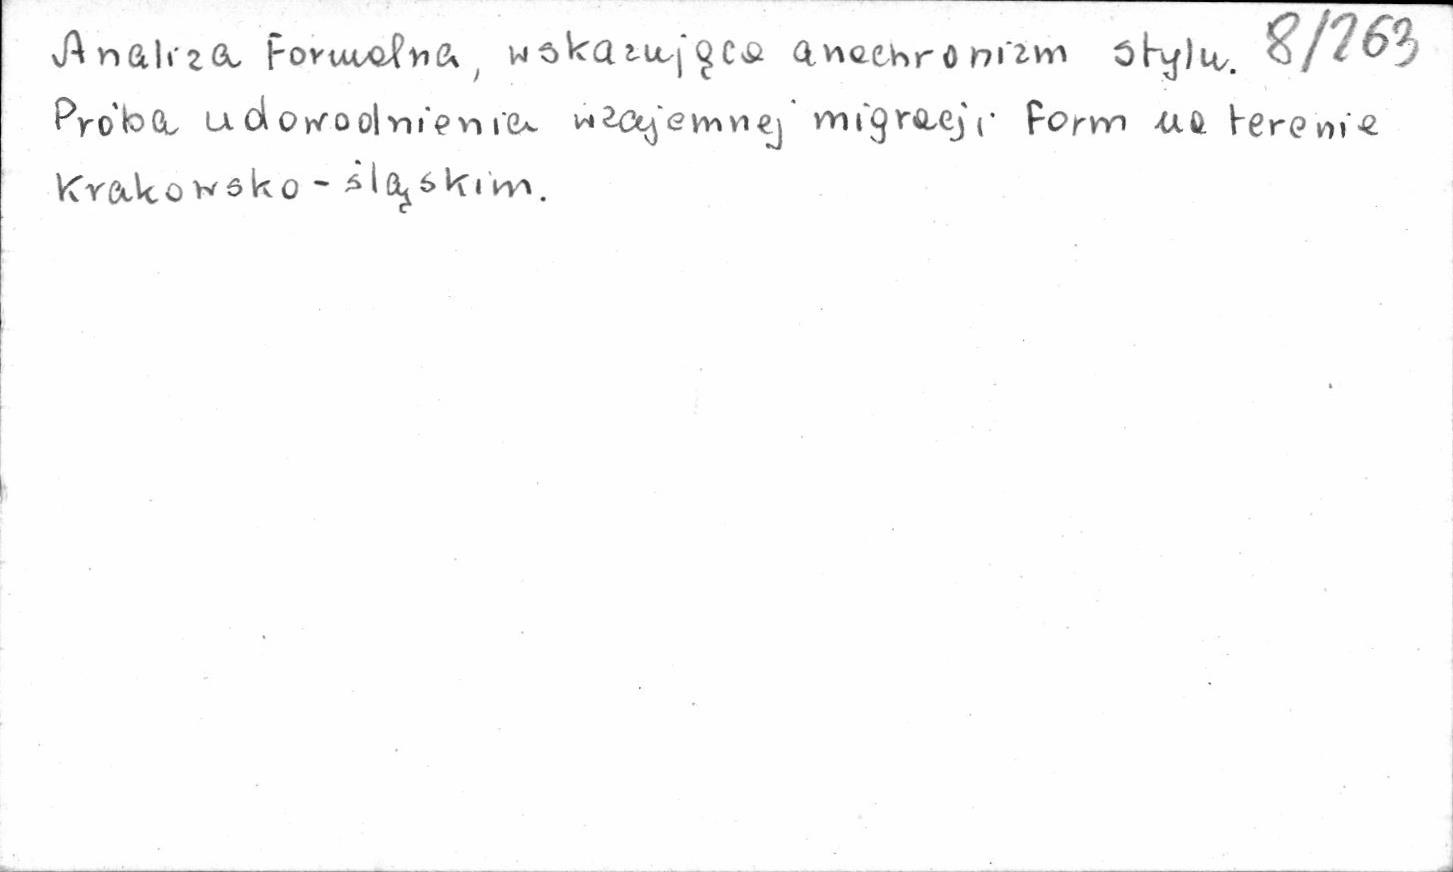 Analiza formalna, wskazująca anachronizm stylu. 8/263
Próba udowodnienia wzajemnej migracji form na terenie
krakowsko-śląskim.